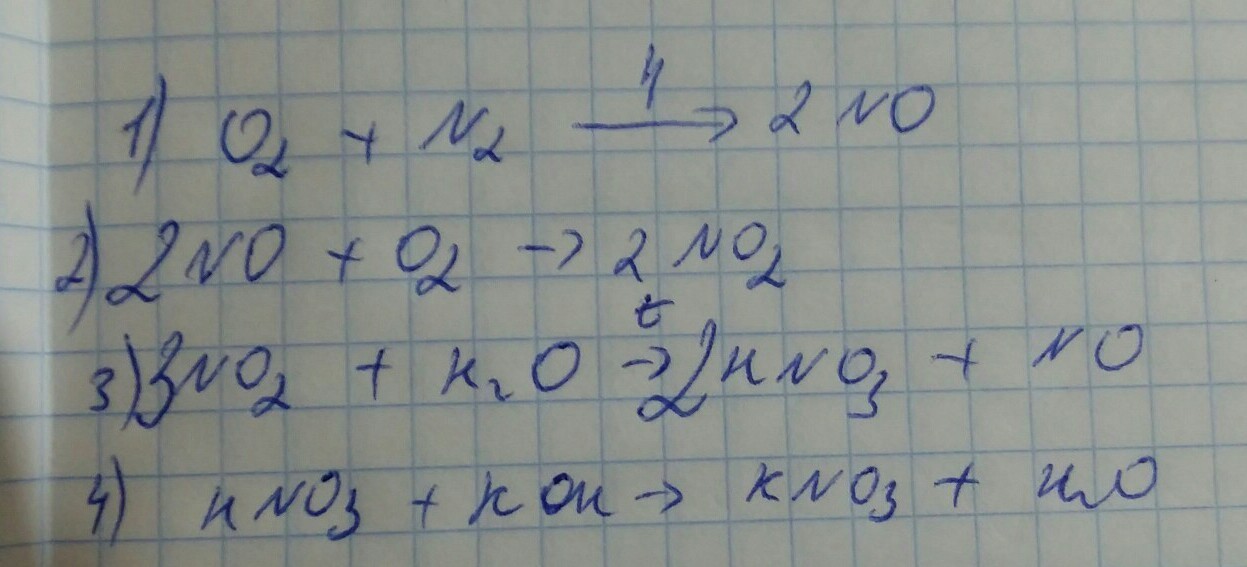 1) O₂ + N₂ ⟶ 2 NO
2) 2NO + O₂ → 2 NO₂
t
3) 3NO₂ + H₂O → 2HNO₃ + NO
4) HNO₃ + KOH → KNO₃ + H₂O